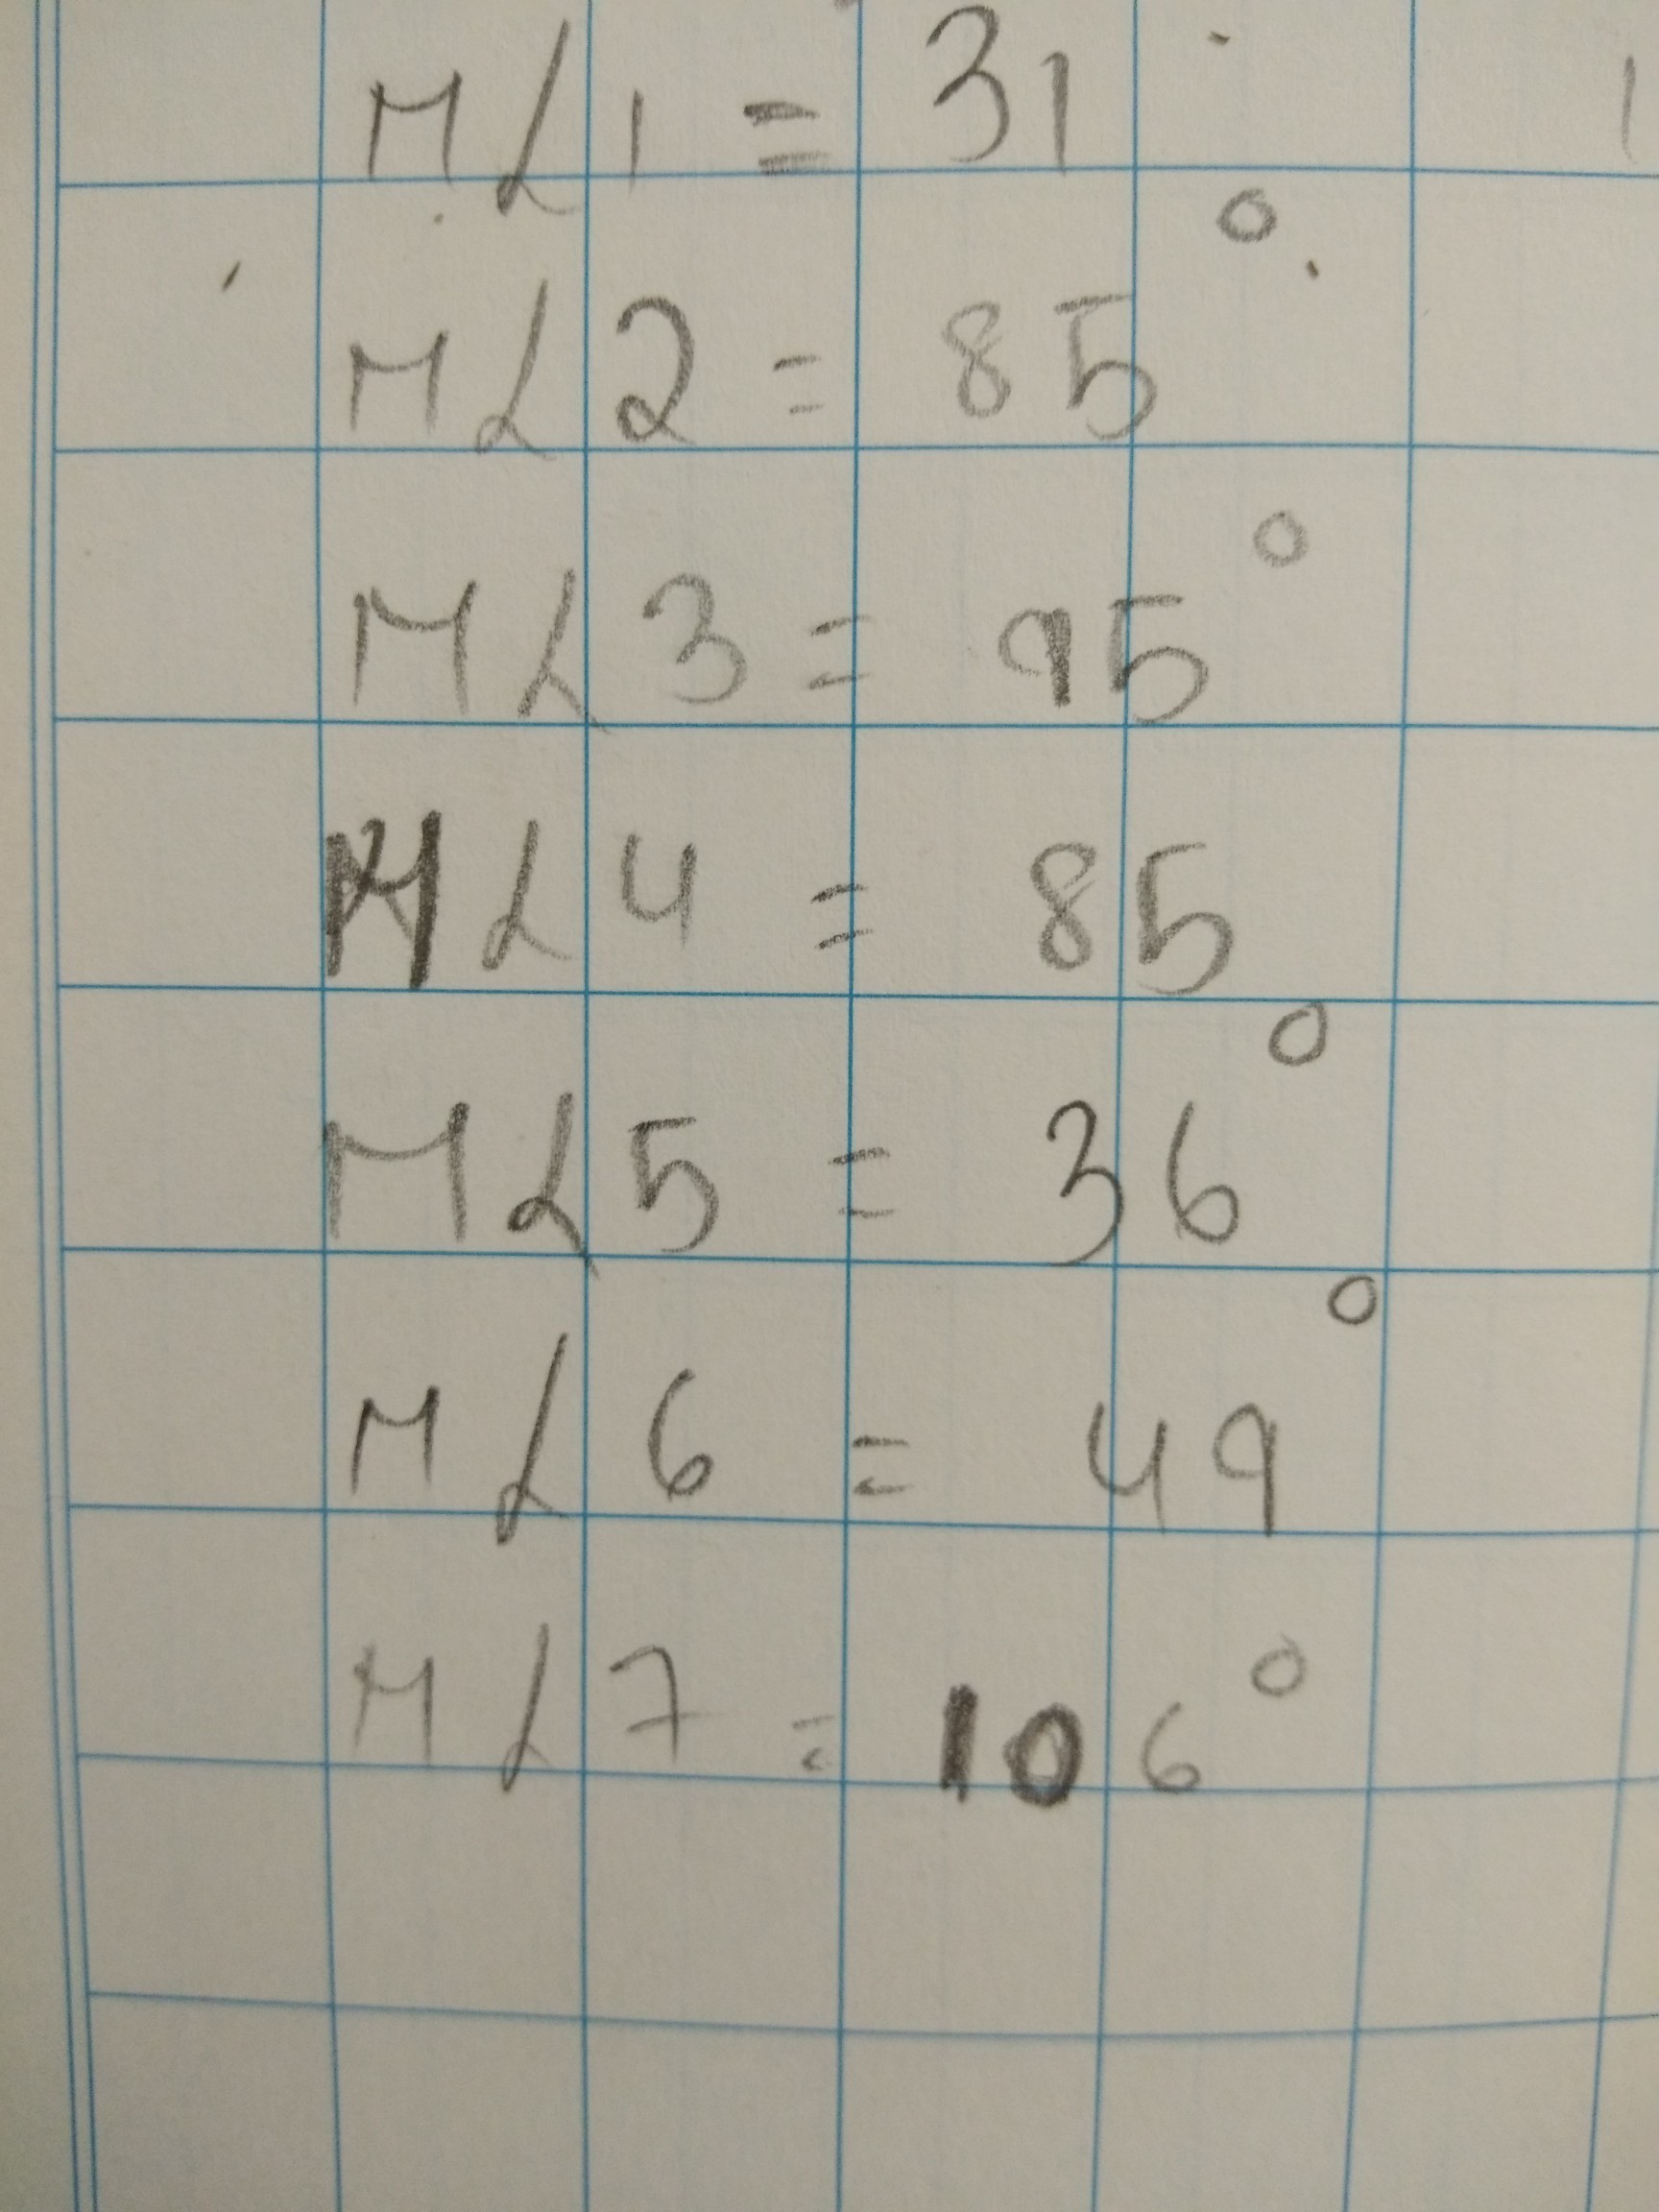 M∠1 = 31
M∠2 = 85°
M∠3 = 95°
M∠4 = 85
M∠5 = 36°
M∠6 = 49°
M∠7 = 106°